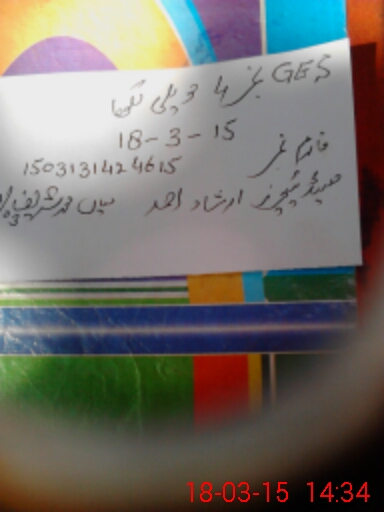 GES نمبر 4 دیپلی لکھا
18-3-15
فارم نمبر 1503131424615
ہیڈ ٹیچرز ارشاد احمد میں محمد شریف
18-03-15 14:34